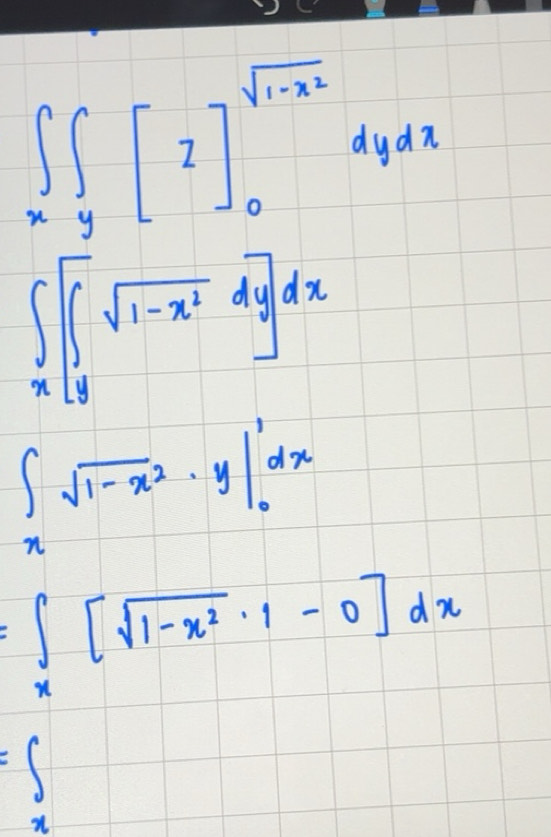 ∫_x ∫_y [z]_0^{√(1-x²)} dydx
∫_x [∫_y √(1-x²) dy] dx
∫_x √(1-x²) · y |_0^1 dx
= ∫_x [√(1-x²) · 1 - 0] dx
= ∫_x